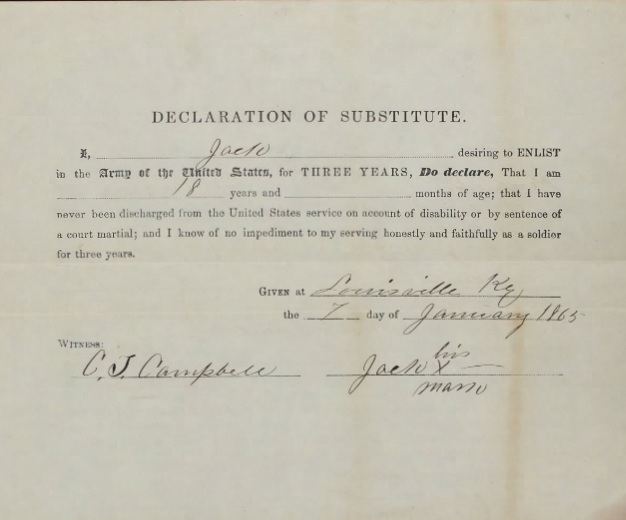 DECLARATION OF SUBSTITUTE.
I, Jack desiring to ENLIST
in the Army of the United States, for THREE YEARS, Do declare, That I am
18 years and months of age; that I have
never been discharged from the United States service on account of disability or by sentence of
a court martial; and I know of no impediment to my serving honestly and faithfully as a soldier
for three years.
GIVEN at Louisville Ky
the 7 day of January 1865
WITNESS:
his
C. J. Campbell Jack X
mark